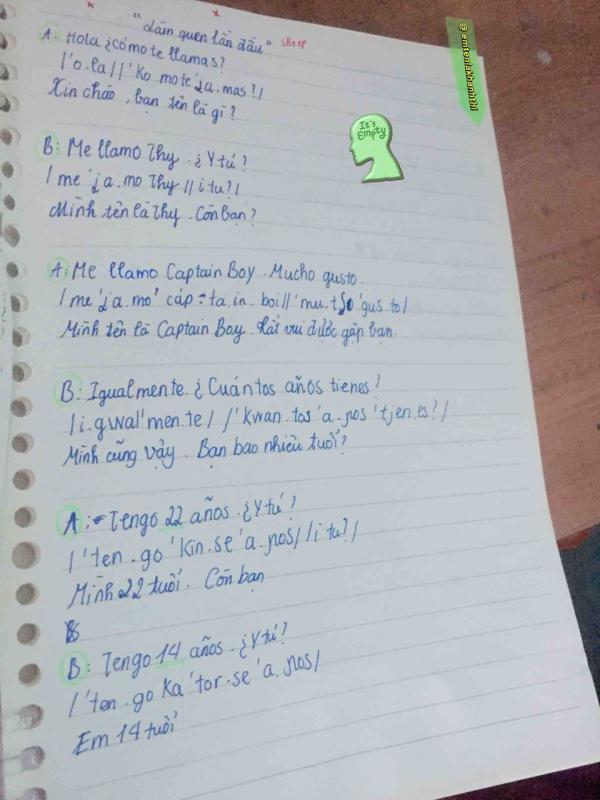 "Làm quen lần đầu"
A: Hola ¿cómo te llamas?
/'o.la//'Ko.mo te 'ja.mas?/
Xin chào, bạn tên là gì?
@emtenlakhanhthi
It's Empty
B: Me llamo Thy. ¿Y tú?
/me 'ja.mo Thy//i tu?/
Mình tên là Thy. Còn bạn?
A: Me llamo Captain Boy. Mucho gusto.
/me 'ja.mo' cáp-ta.in.boi//'mu.tʃo 'gus.to/
Mình tên là Captain Boy. Rất vui được gặp bạn.
B: Igualmente. ¿Cuántos años tienes?
/i.gwal'men.te/ /'Kwan.tos 'a.ɲos 'tjen.es?/
Mình cũng vậy. Bạn bao nhiêu tuổi?
A: Tengo 22 años. ¿Y tú?
/'ten.go 'Kin.se 'a.ɲos//i tu?/
Mình 22 tuổi. Còn bạn
B: Tengo 14 años. ¿Y tú?
/'ten.go Ka'tor.se 'a.ɲos/
Em 14 tuổi